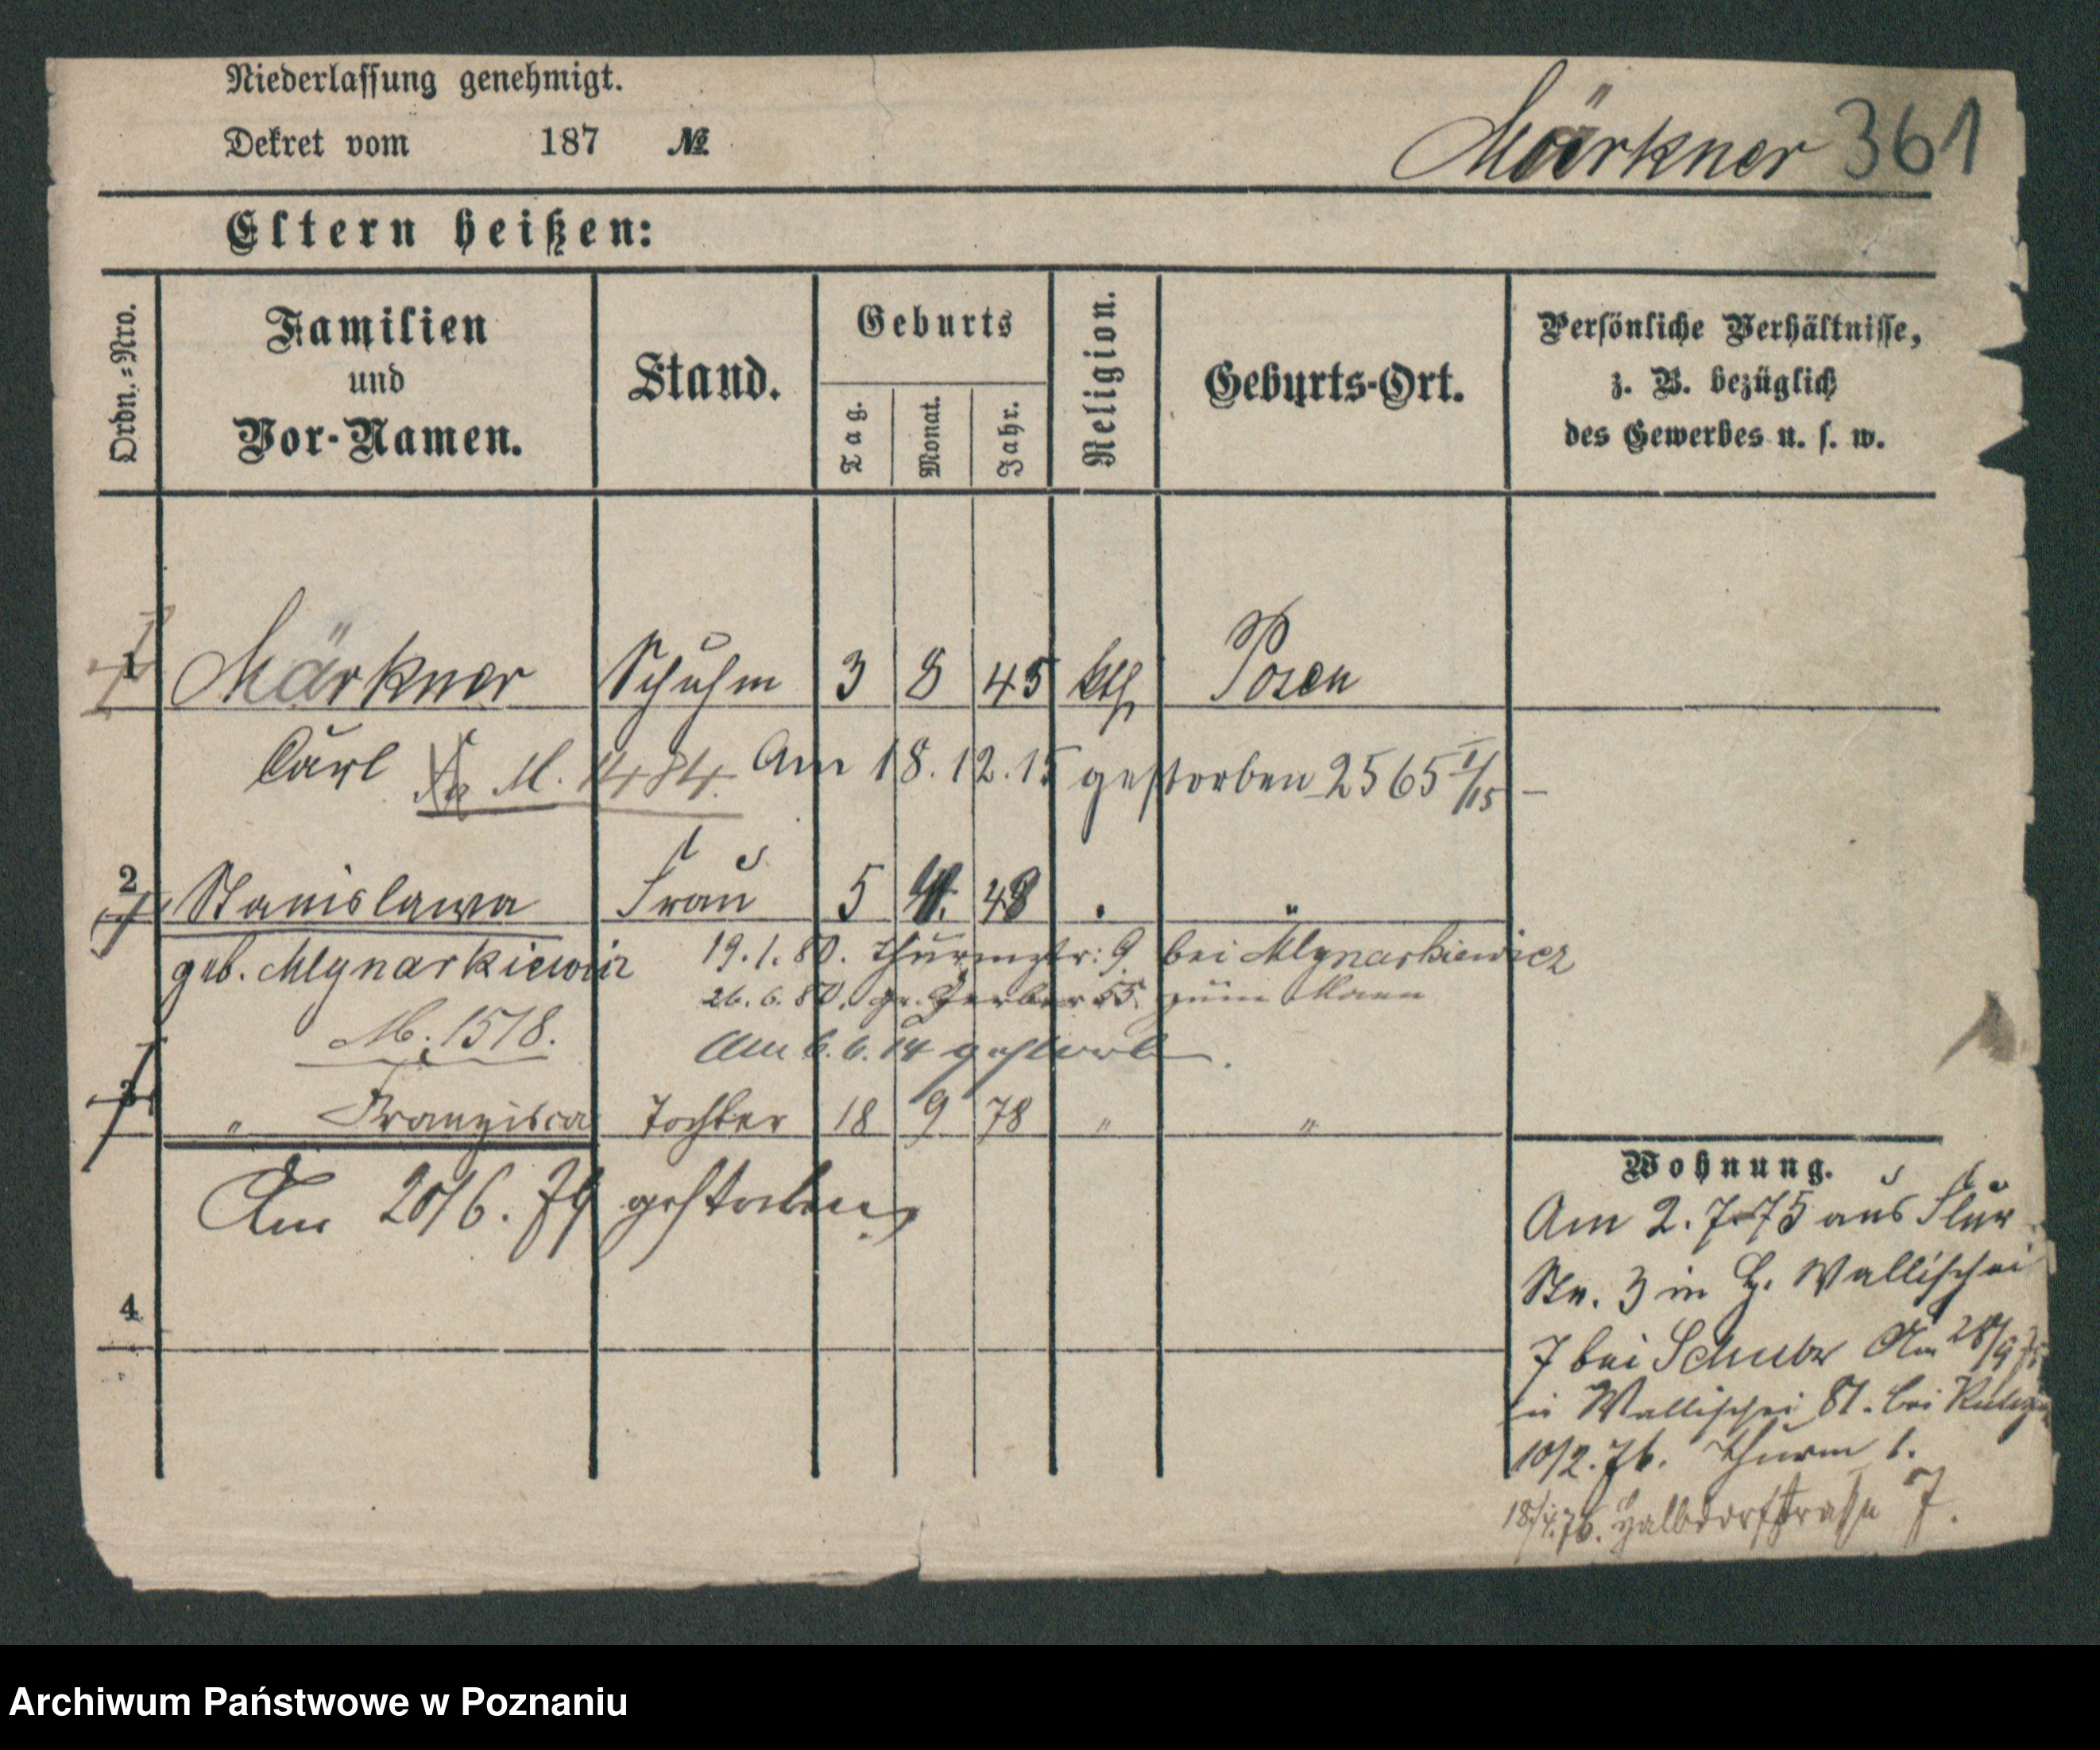 Niederlassung genehmigt.
Dekret vom 187 №
Märkner 361
Eltern heißen:
Ordn.-Nro.
Familien
und
Vor-Namen.
Stand.
Geburts
Tag.
Monat.
Jahr.
Religion.
Geburts-Ort.
Persönliche Verhältnisse,
z. B. bezüglich
des Gewerbes u. s. w.
1 Märkner Schuhm 3 8 45 kth Posen
Carl M. 1484. Am 18.12.15 gestorben 2565 I/15 –
2 Stanislawa Frau 5 48 . "
geb. Mlynarkiewicz 19.1.80. Thurmstr: 9 bei Mlynarkiewicz
26.6.80. gr. Gerber 55. zum Mann
M. 1518.
Am 6.6.14 gestorb.
3 " Franzisca Tochter 18 9 78 " "
Am 20/6.79 gestorben
4
Wohnung.
Am 2.7.75 aus Flur
Str. 3 in Wallischei
7 bei Am 28/9 75
in Wallischei 81. bei
10/2.76. Thurm 1.
18/4.76. Halbdorfstraße 7.
Archiwum Państwowe w Poznaniu